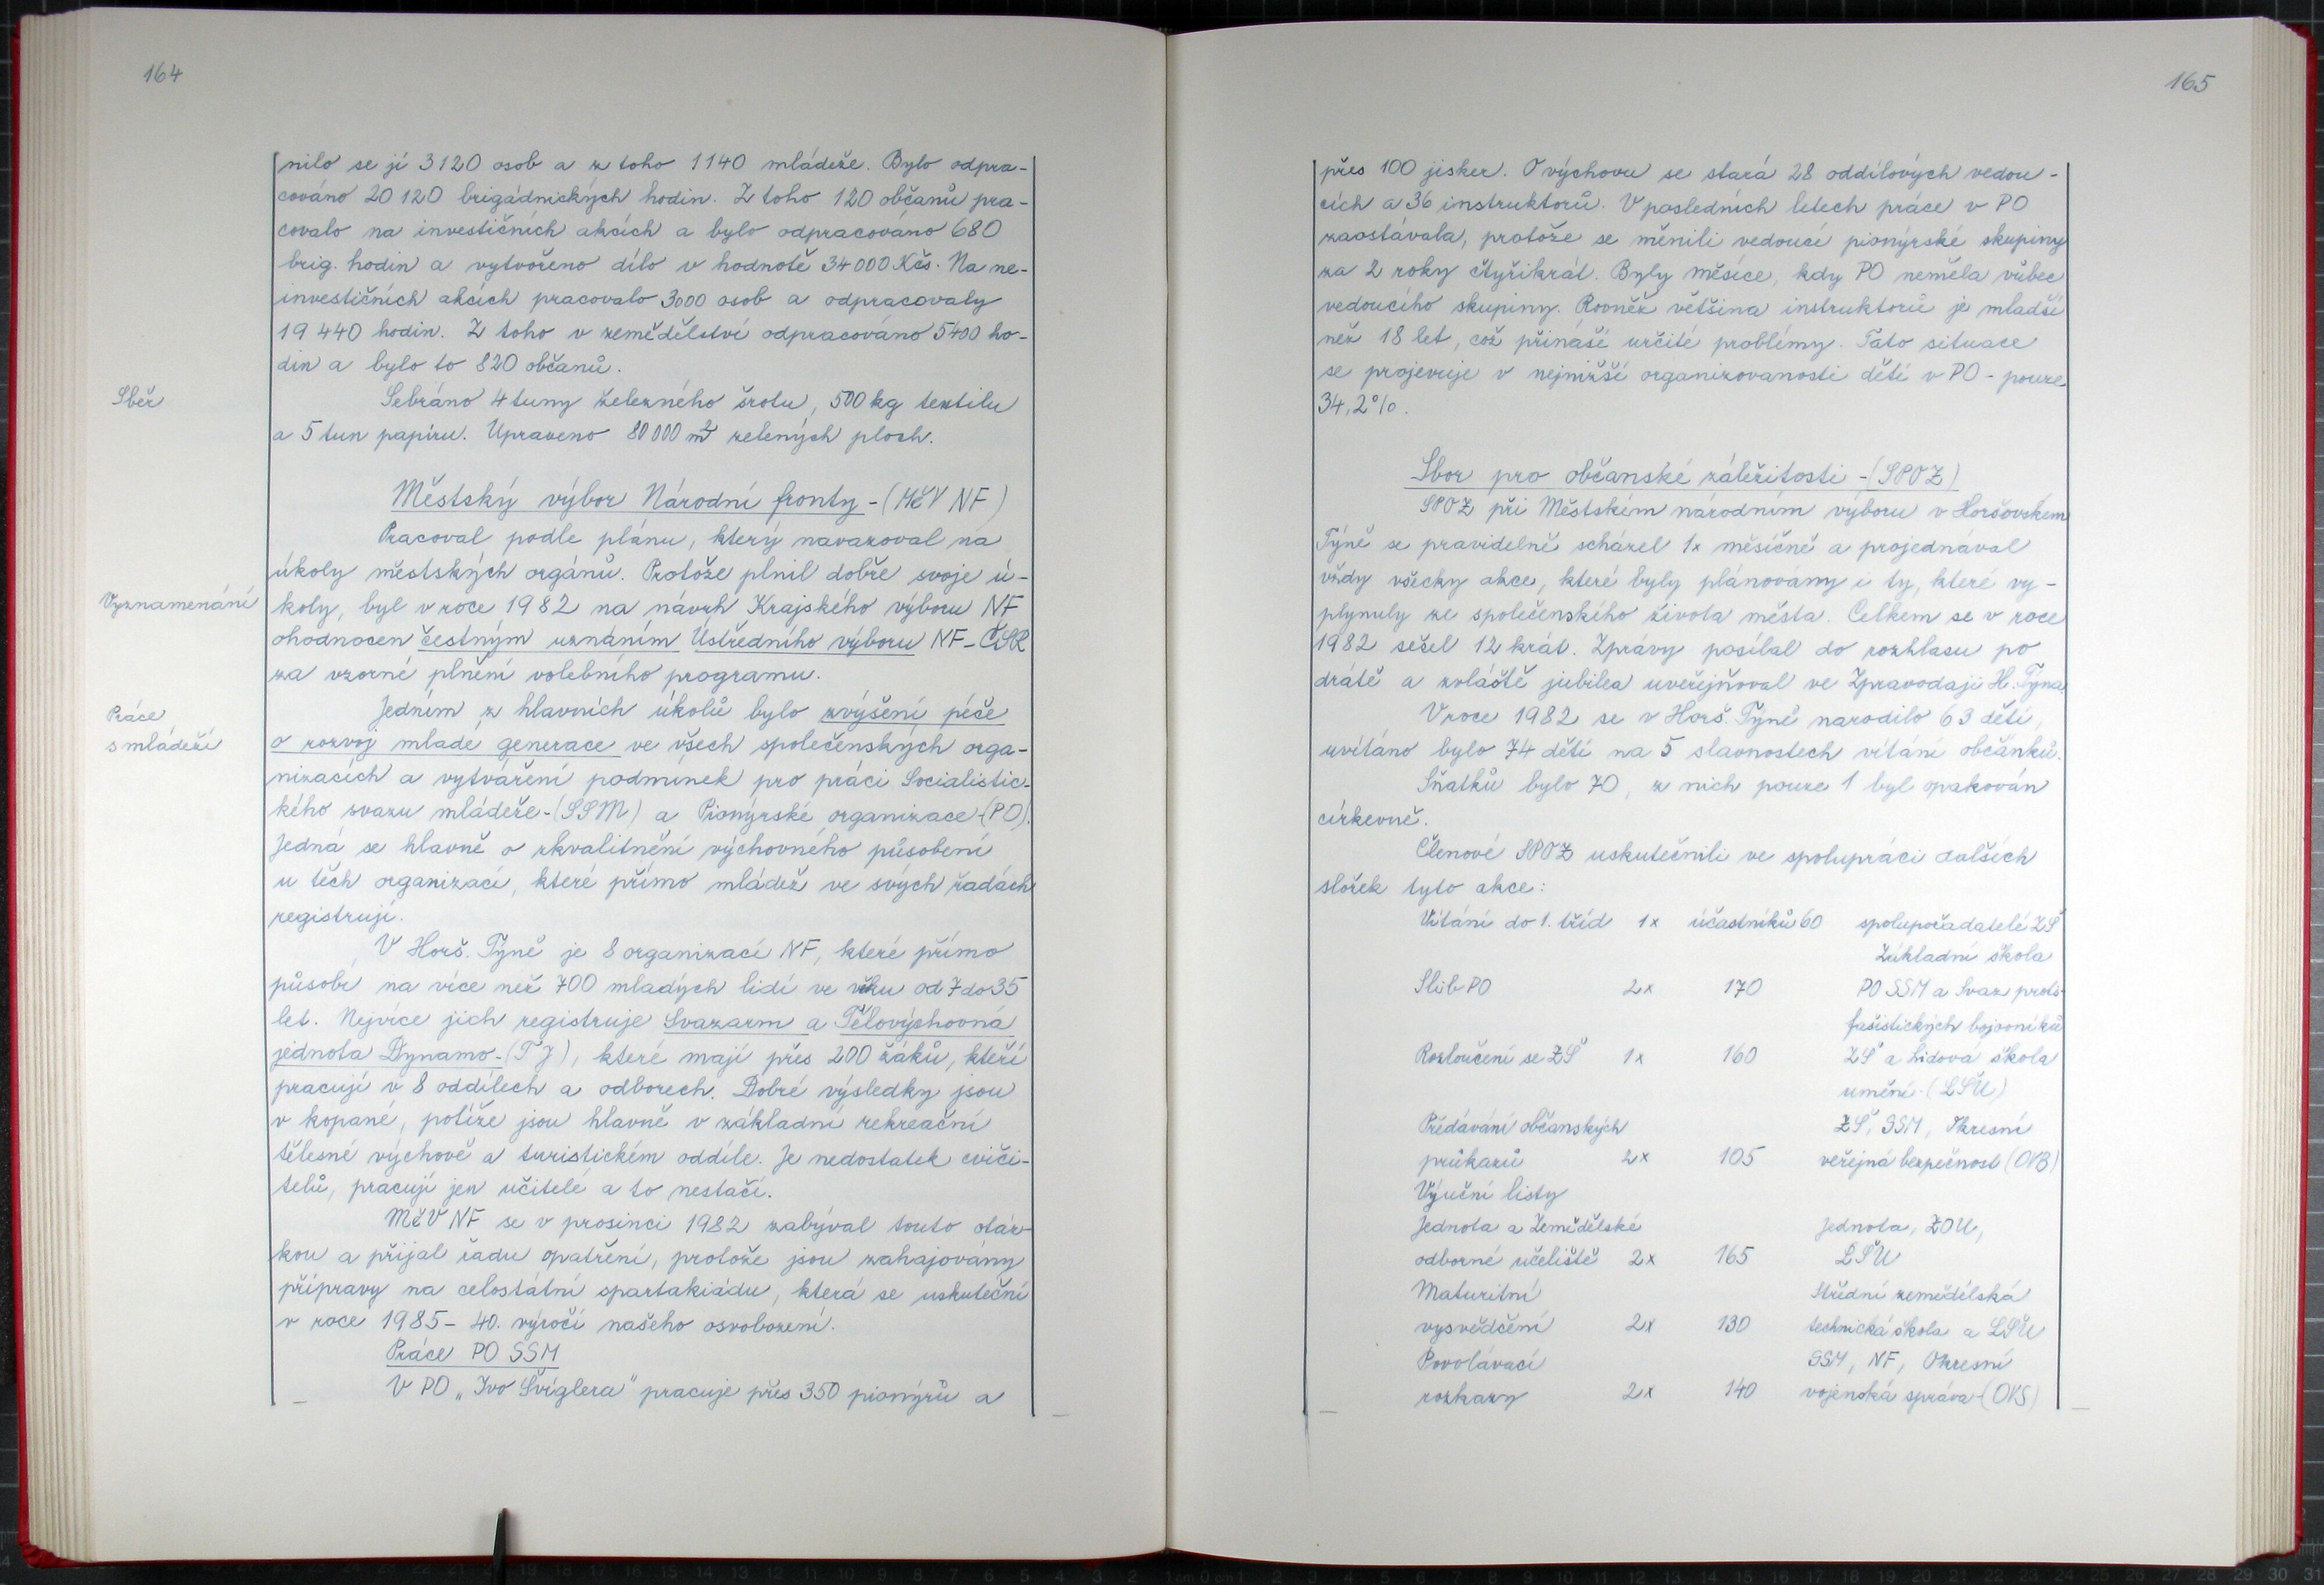 164
nilo se jí 3120 osob a z toho 1140 mládeže. Bylo odpra-
cováno 20 120 brigádnických hodin. Z toho 120 občanů pra-
covalo na investičních akcích a bylo odpracováno 680
brig. hodin a vytvořeno dílo v hodnotě 34 000 Kčs. Na ne-
investičních akcích pracovalo 3000 osob a odpracovaly
19 440 hodin. Z toho v zemědělství odpracováno 5400 ho-
din a bylo to 820 občanů.
Sběr
Sebráno 4 tuny železného šrotu, 500 kg textilu
a 5 tun papíru. Upraveno 80 000 m² zelených ploch.
Městský výbor Národní fronty - (MěV NF)
Pracoval podle plánu, který navazoval na
úkoly městských orgánů. Protože plnil dobře svoje ú-
Vyznamenání
koly, byl v roce 1982 na návrh Krajského výboru NF
ohodnocen čestným uznáním Ústředního výboru NF-ČSR
za vzorné plnění volebního programu.
Práce
s mládeží
Jedním z hlavních úkolů bylo zvýšení péče
o rozvoj mladé generace ve všech společenských orga-
nizacích a vytváření podmínek pro práci Socialistic-
kého svazu mládeže - (SSM) a Pionýrské organizace - (PO).
Jedná se hlavně o zkvalitnění výchovného působení
u těch organizací, které přímo mládež ve svých řadách
registrují.
V Horš. Týně je 8 organizací NF, které přímo
působí na více než 700 mladých lidí ve věku od 7 do 35
let. Nejvíce jich registruje Svazarm a Tělovýchovná
jednota Dynamo - (TJ), které mají přes 200 žáků, kteří
pracují v 8 oddílech a odborech. Dobré výsledky jsou
v kopané, potíže jsou hlavně v základní rekreační
tělesné výchově a turistickém oddíle. Je nedostatek cviči-
telů, pracují jen učitelé a to nestačí.
MěV NF se v prosinci 1982 zabýval touto otáz-
kou a přijal řadu opatření, protože jsou zahajovány
přípravy na celostátní spartakiádu, která se uskuteční
v roce 1985 - 40. výročí našeho osvobození.
Práce PO SSM
V PO „Ivo Šviglera" pracuje přes 350 pionýrů a
165
přes 100 jisker. O výchovu se stará 28 oddílových vedou-
cích a 36 instruktorů. V posledních letech práce v PO
zaostávala, protože se měnili vedoucí pionýrské skupiny
za 2 roky čtyřikrát. Byly měsíce, kdy PO neměla vůbec
vedoucího skupiny. Rovněž většina instruktorů je mladší
než 18 let, což přináší určité problémy. Tato situace
se projevuje v nejnižší organizovanosti dětí v PO - pouze
34,2%.
Sbor pro občanské záležitosti - (SPOZ)
SPOZ při Městském národním výboru v Horšovském
Týně se pravidelně scházel 1x měsíčně a projednával
vždy všecky akce, které byly plánovány i ty, které vy-
plynuly ze společenského života města. Celkem se v roce
1982 sešel 12 krát. Zprávy posílal do rozhlasu po
drátě a zvláště jubilea uveřejňoval ve Zpravodaji H. Týna.
V roce 1982 se v Horš. Týně narodilo 63 dětí,
uvítáno bylo 74 dětí na 5 slavnostech vítání občánků.
Sňatků bylo 70, z nich pouze 1 byl opakován
církevně.
Členové SPOZ uskutečnili ve spolupráci dalších
složek tyto akce:
Vítání do 1. tříd 1x účastníků 60 spolupořadatelé ZŠ
Základní škola
Slib PO 2x 170 PO SSM a Svaz proti-
fašistických bojovníků
Rozloučení se ZŠ 1x 160 ZŠ a Lidová škola
umění - (LŠU)
Předávání občanských ZŠ, SSM, Okresní
průkazů 2x 105 veřejná bezpečnost (OVB)
Výuční listy
Jednota a Zemědělské Jednota, ZOU,
odborné učeliště 2x 165 LŠU
Maturitní Střední zemědělská
vysvědčení 2x 130 technická škola a LŠU
Povolávací SSM, NF, Okresní
rozkazy 2x 140 vojenská správa - (OVS)